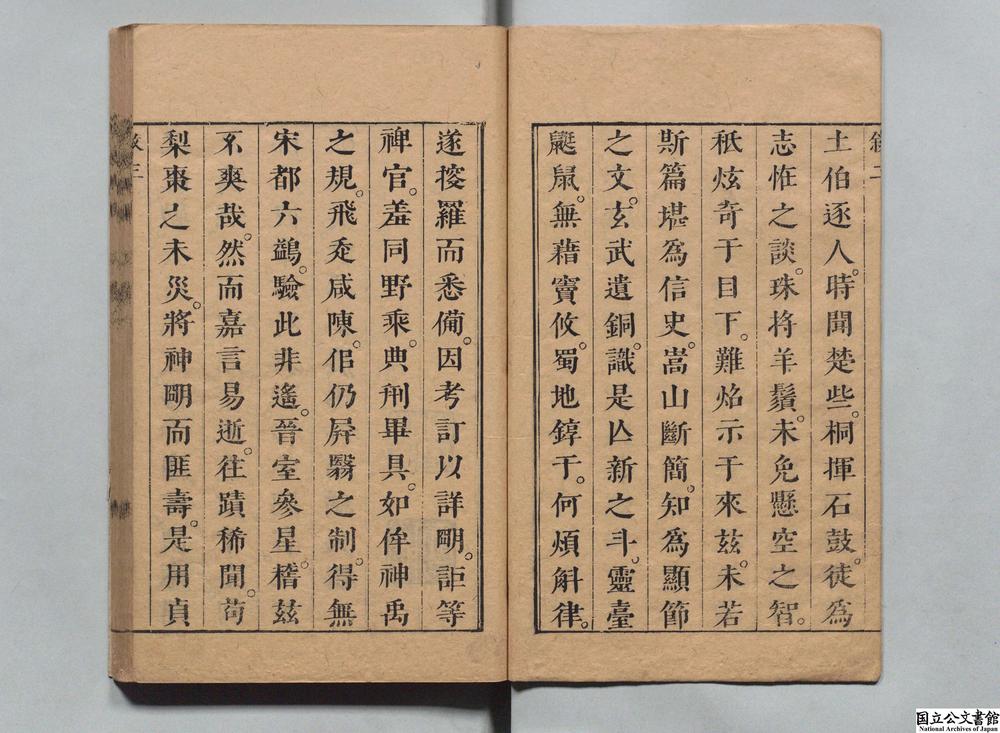 土伯逐人。時聞楚些。桐揮石鼓。徒為
志怪之談。珠捋羊鬚。未免懸空之智。
秪炫奇于目下。難焰示于來茲。未若
斯篇堪為信史。嵩山斷簡。知為顯節
之文。玄武遺銅。識是亾新之斗。靈臺
鼮鼠。無藉竇攸。蜀地錞于。何煩斛律。
遂搜羅而悉備。因考訂以詳明。詎等
稗官。羞同野乘。典刑畢具。如侔神禹
之規。飛走咸陳。伹仍屏翳之制。得無
宋都六鷁。驗此非遙。晉室參星。稽茲
不爽哉。然而嘉言易逝。往蹟稀聞。茍
梨棗之未災。將神明而匪壽。是用貞
敘三
国立公文書館
National Archives of Japan